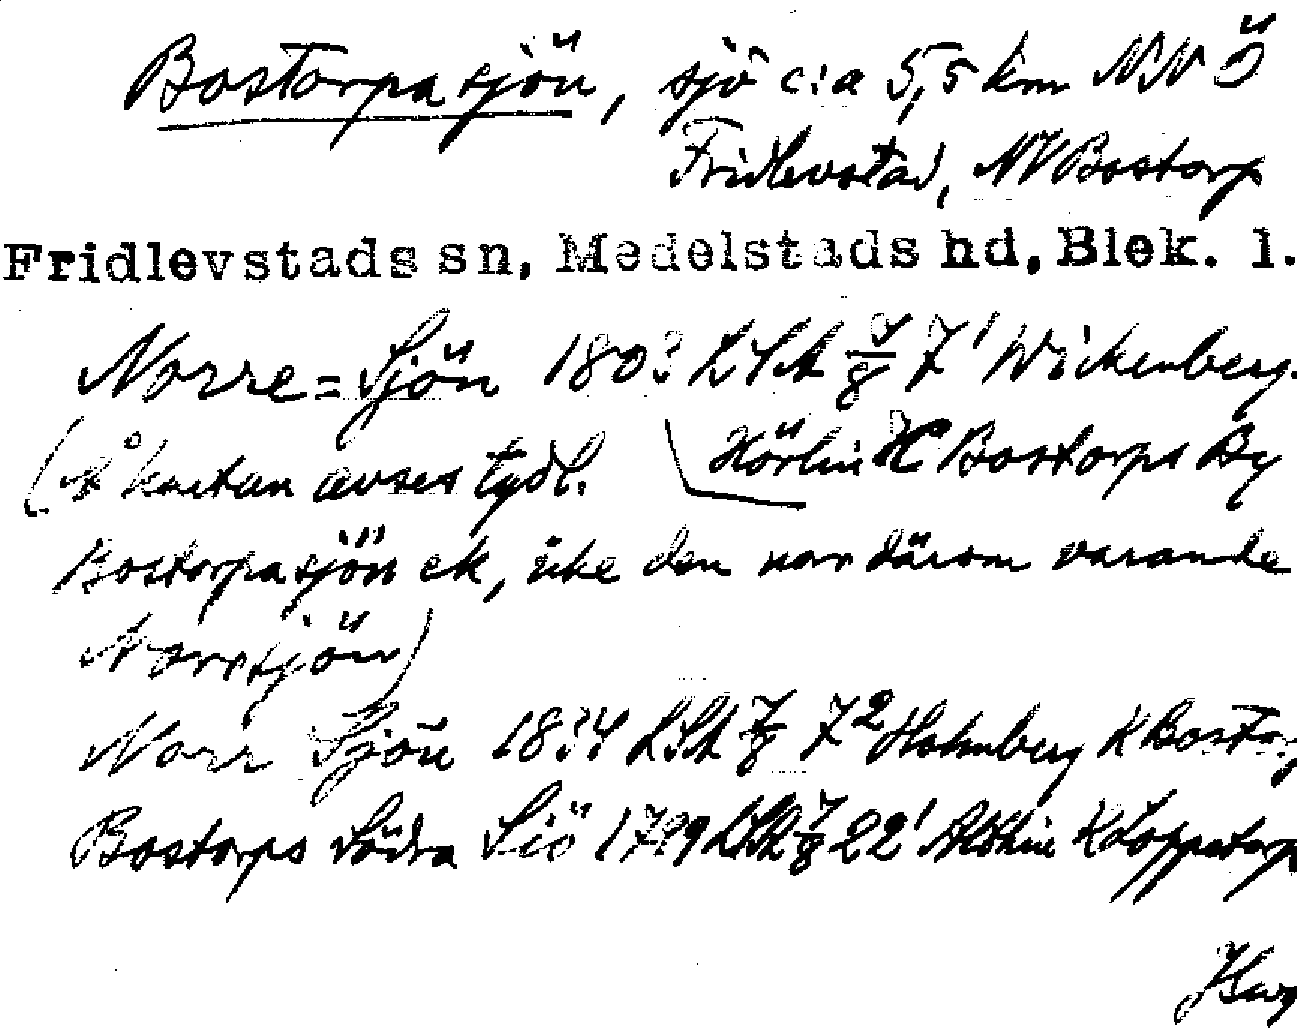 Bostorpasjön, sjö c:a 5,5 km NNÖ
Fridlevstad, NV Bostorp
Fridlevstads sn, Medelstads hd, Blek. l.
Norre=Sjön 1803 LSA 7/8 7¹ Wickenberg
(å kartan avses tydl. Hörlin K Bostorps By
Bostorpasjön ek, icke den norr därom varande
Norrsjön)
Norr Sjön 1834 LSA 7/8 7² Holmberg K Bostorp
Bostorps södra Siö 1799 LSA 7/8 22¹ K Loppetorp